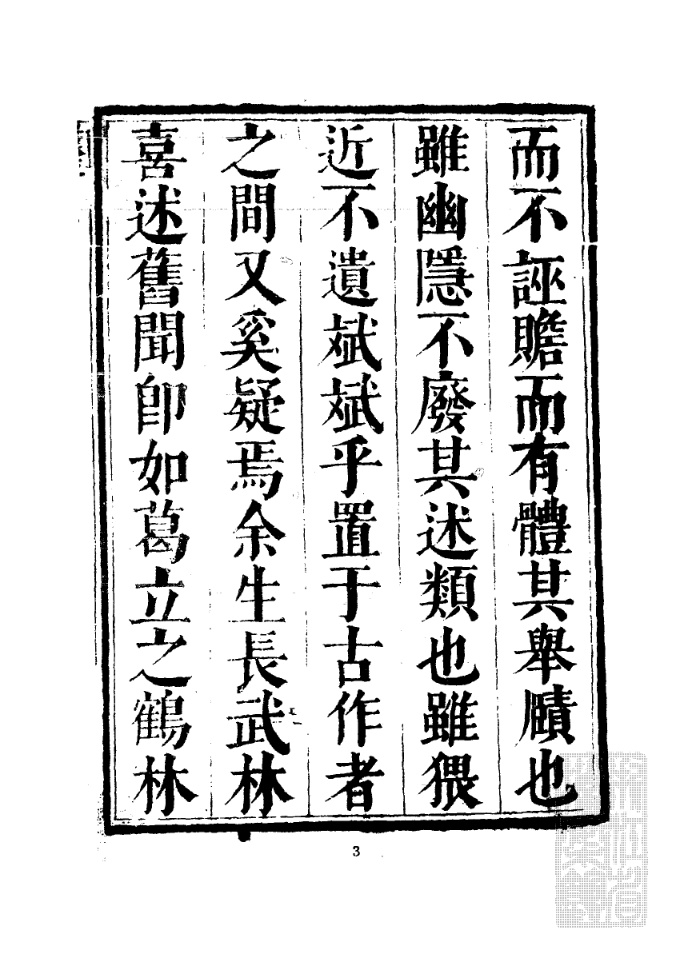 而不誣贍而有體其舉賾也
雖幽隱不廢其述類也雖猥
近不遺斌斌乎置于古作者
之間又奚疑焉余生長武林
喜述舊聞卽如葛立之鶴林
3